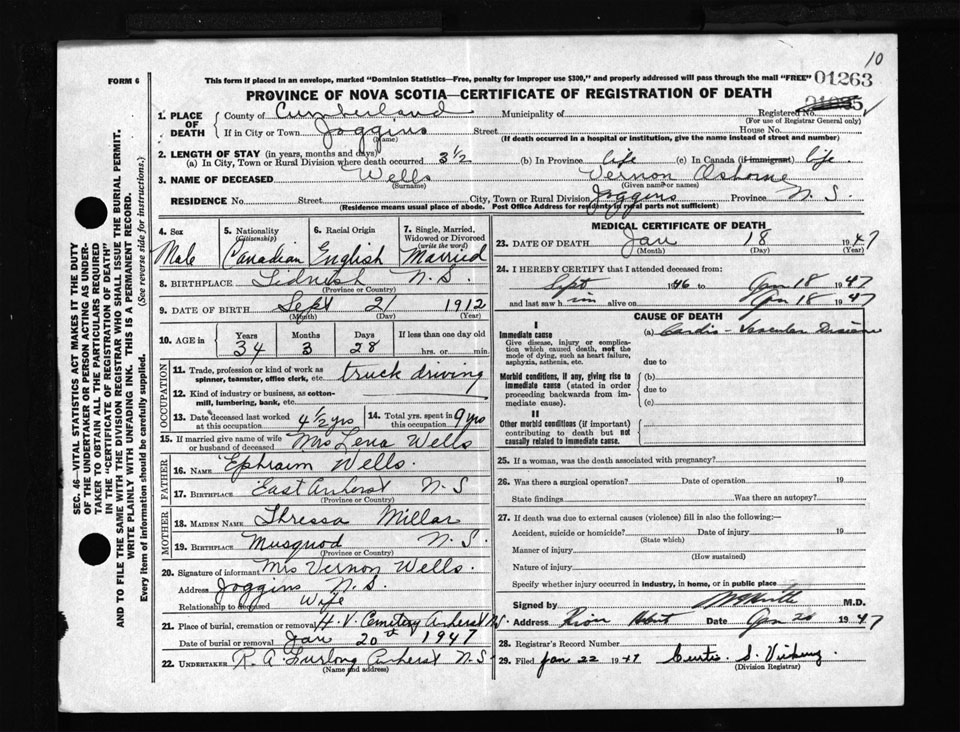 10
FORM 6
This form if placed in an envelope, marked "Dominion Statistics—Free, penalty for improper use $300," and properly addressed will pass through the mail "FREE"
01263
PROVINCE OF NOVA SCOTIA—CERTIFICATE OF REGISTRATION OF DEATH
1. PLACE OF DEATH
County of Cumberland Municipality of Registered No.
(For use of Registrar General only)
If in City or Town Joggins Street House No.
(Name) (If death occurred in a hospital or institution, give the name instead of street and number)
2. LENGTH OF STAY (in years, months and days)
(a) In City, Town or Rural Division where death occurred 3 1/2 (b) In Province life (c) In Canada (if immigrant) life.
3. NAME OF DECEASED Wells Vernon Osborne
(Surname) (Given name or names)
RESIDENCE No. Street City, Town or Rural Division Joggins Province N. S.
(Residence means usual place of abode. Post Office Address for residents in rural parts not sufficient)
4. Sex Male
5. Nationality (Citizenship) Canadian
6. Racial Origin English
7. Single, Married, Widowed or Divorced (write the word) Married
8. BIRTHPLACE Tidnish N. S.
(Province or Country)
9. DATE OF BIRTH Sept 21 1912
(Month) (Day) (Year)
10. AGE in Years Months Days If less than one day
34 3 28 hrs. or min.
OCCUPATION
11. Trade, profession or kind of work as spinner, teamster, office clerk, etc. truck driving
12. Kind of industry or business, as cotton-mill, lumbering, bank, etc.
13. Date deceased last worked at this occupation 4 1/2 yrs
14. Total yrs. spent in this occupation 9 yrs
15. If married give name of wife or husband of deceased Mrs Lena Wells
FATHER
16. NAME Ephraim Wells.
17. BIRTHPLACE East Amherst N. S
(Province or Country)
MOTHER
18. MAIDEN NAME Thressa Millar
19. BIRTHPLACE N. S.
(Province or Country)
20. Signature of informant Mrs Vernon Wells.
Address Joggins N. S.
Relationship to deceased Wife
21. Place of burial, cremation or removal H. V. Cemetery Amherst N.S.
Date of burial or removal Jan 20th 1947
22. UNDERTAKER R. A Furlong Amherst N. S.
(Name and address)
MEDICAL CERTIFICATE OF DEATH
23. DATE OF DEATH Jan 18 1947
(Month) (Day) (Year)
24. I HEREBY CERTIFY that I attended deceased from:
Sept 1946 to Jan 18 1947
and last saw him alive on Jan 18 1947
CAUSE OF DEATH
I
Immediate cause
Give disease, injury or complication which caused death, not the mode of dying, such as heart failure, asphyxia, asthenia, etc.
(a) Cardio-Vascular Disease
due to
Morbid conditions, if any, giving rise to immediate cause (stated in order proceeding backwards from immediate cause).
(b)
due to
(c)
II
Other morbid conditions (if important) contributing to death but not causally related to immediate cause.
25. If a woman, was the death associated with pregnancy?
26. Was there a surgical operation? Date of operation 19
State findings Was there an autopsy?
27. If death was due to external causes (violence) fill in also the following:—
Accident, suicide or homicide? Date of injury 19
(State which)
Manner of injury
(How sustained)
Nature of injury
Specify whether injury occurred in industry, in home, or in public place
Signed by M.D.
Address River Hebert Date Jan 20 1947
28. Registrar's Record Number
29. Filed Jan 22 1947 Curtis S.
(Division Registrar)
SEC. 46—VITAL STATISTICS ACT MAKES IT THE DUTY
OF THE UNDERTAKER OR PERSON ACTING AS UNDER-
TAKER TO OBTAIN ALL THE PARTICULARS REQUIRED
IN THE "CERTIFICATE OF REGISTRATION OF DEATH"
AND TO FILE THE SAME WITH THE DIVISION REGISTRAR WHO SHALL ISSUE THE BURIAL PERMIT.
WRITE PLAINLY WITH UNFADING INK. THIS IS A PERMANENT RECORD.
Every item of information should be carefully supplied. (See reverse side for instructions.)